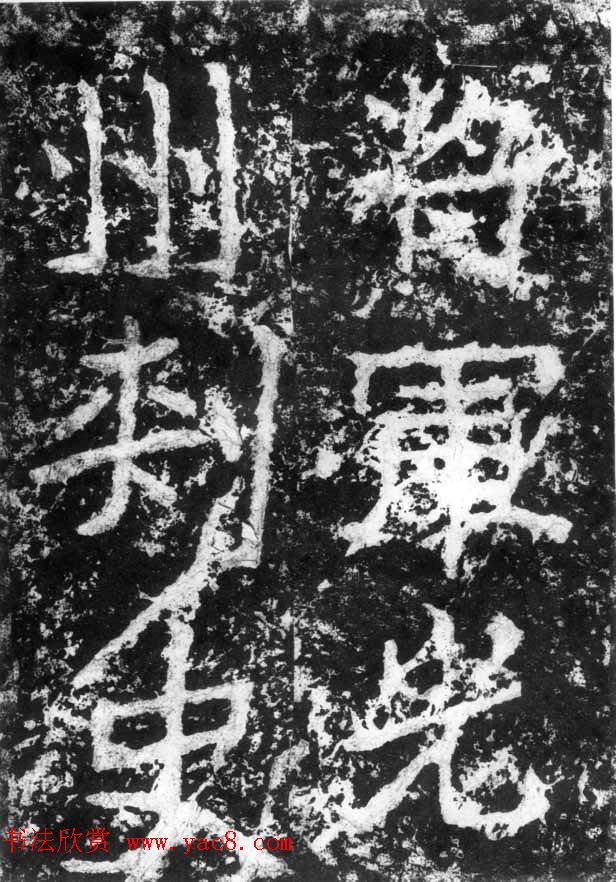 将軍光
州刾史
书法欣赏 www.yac8.com